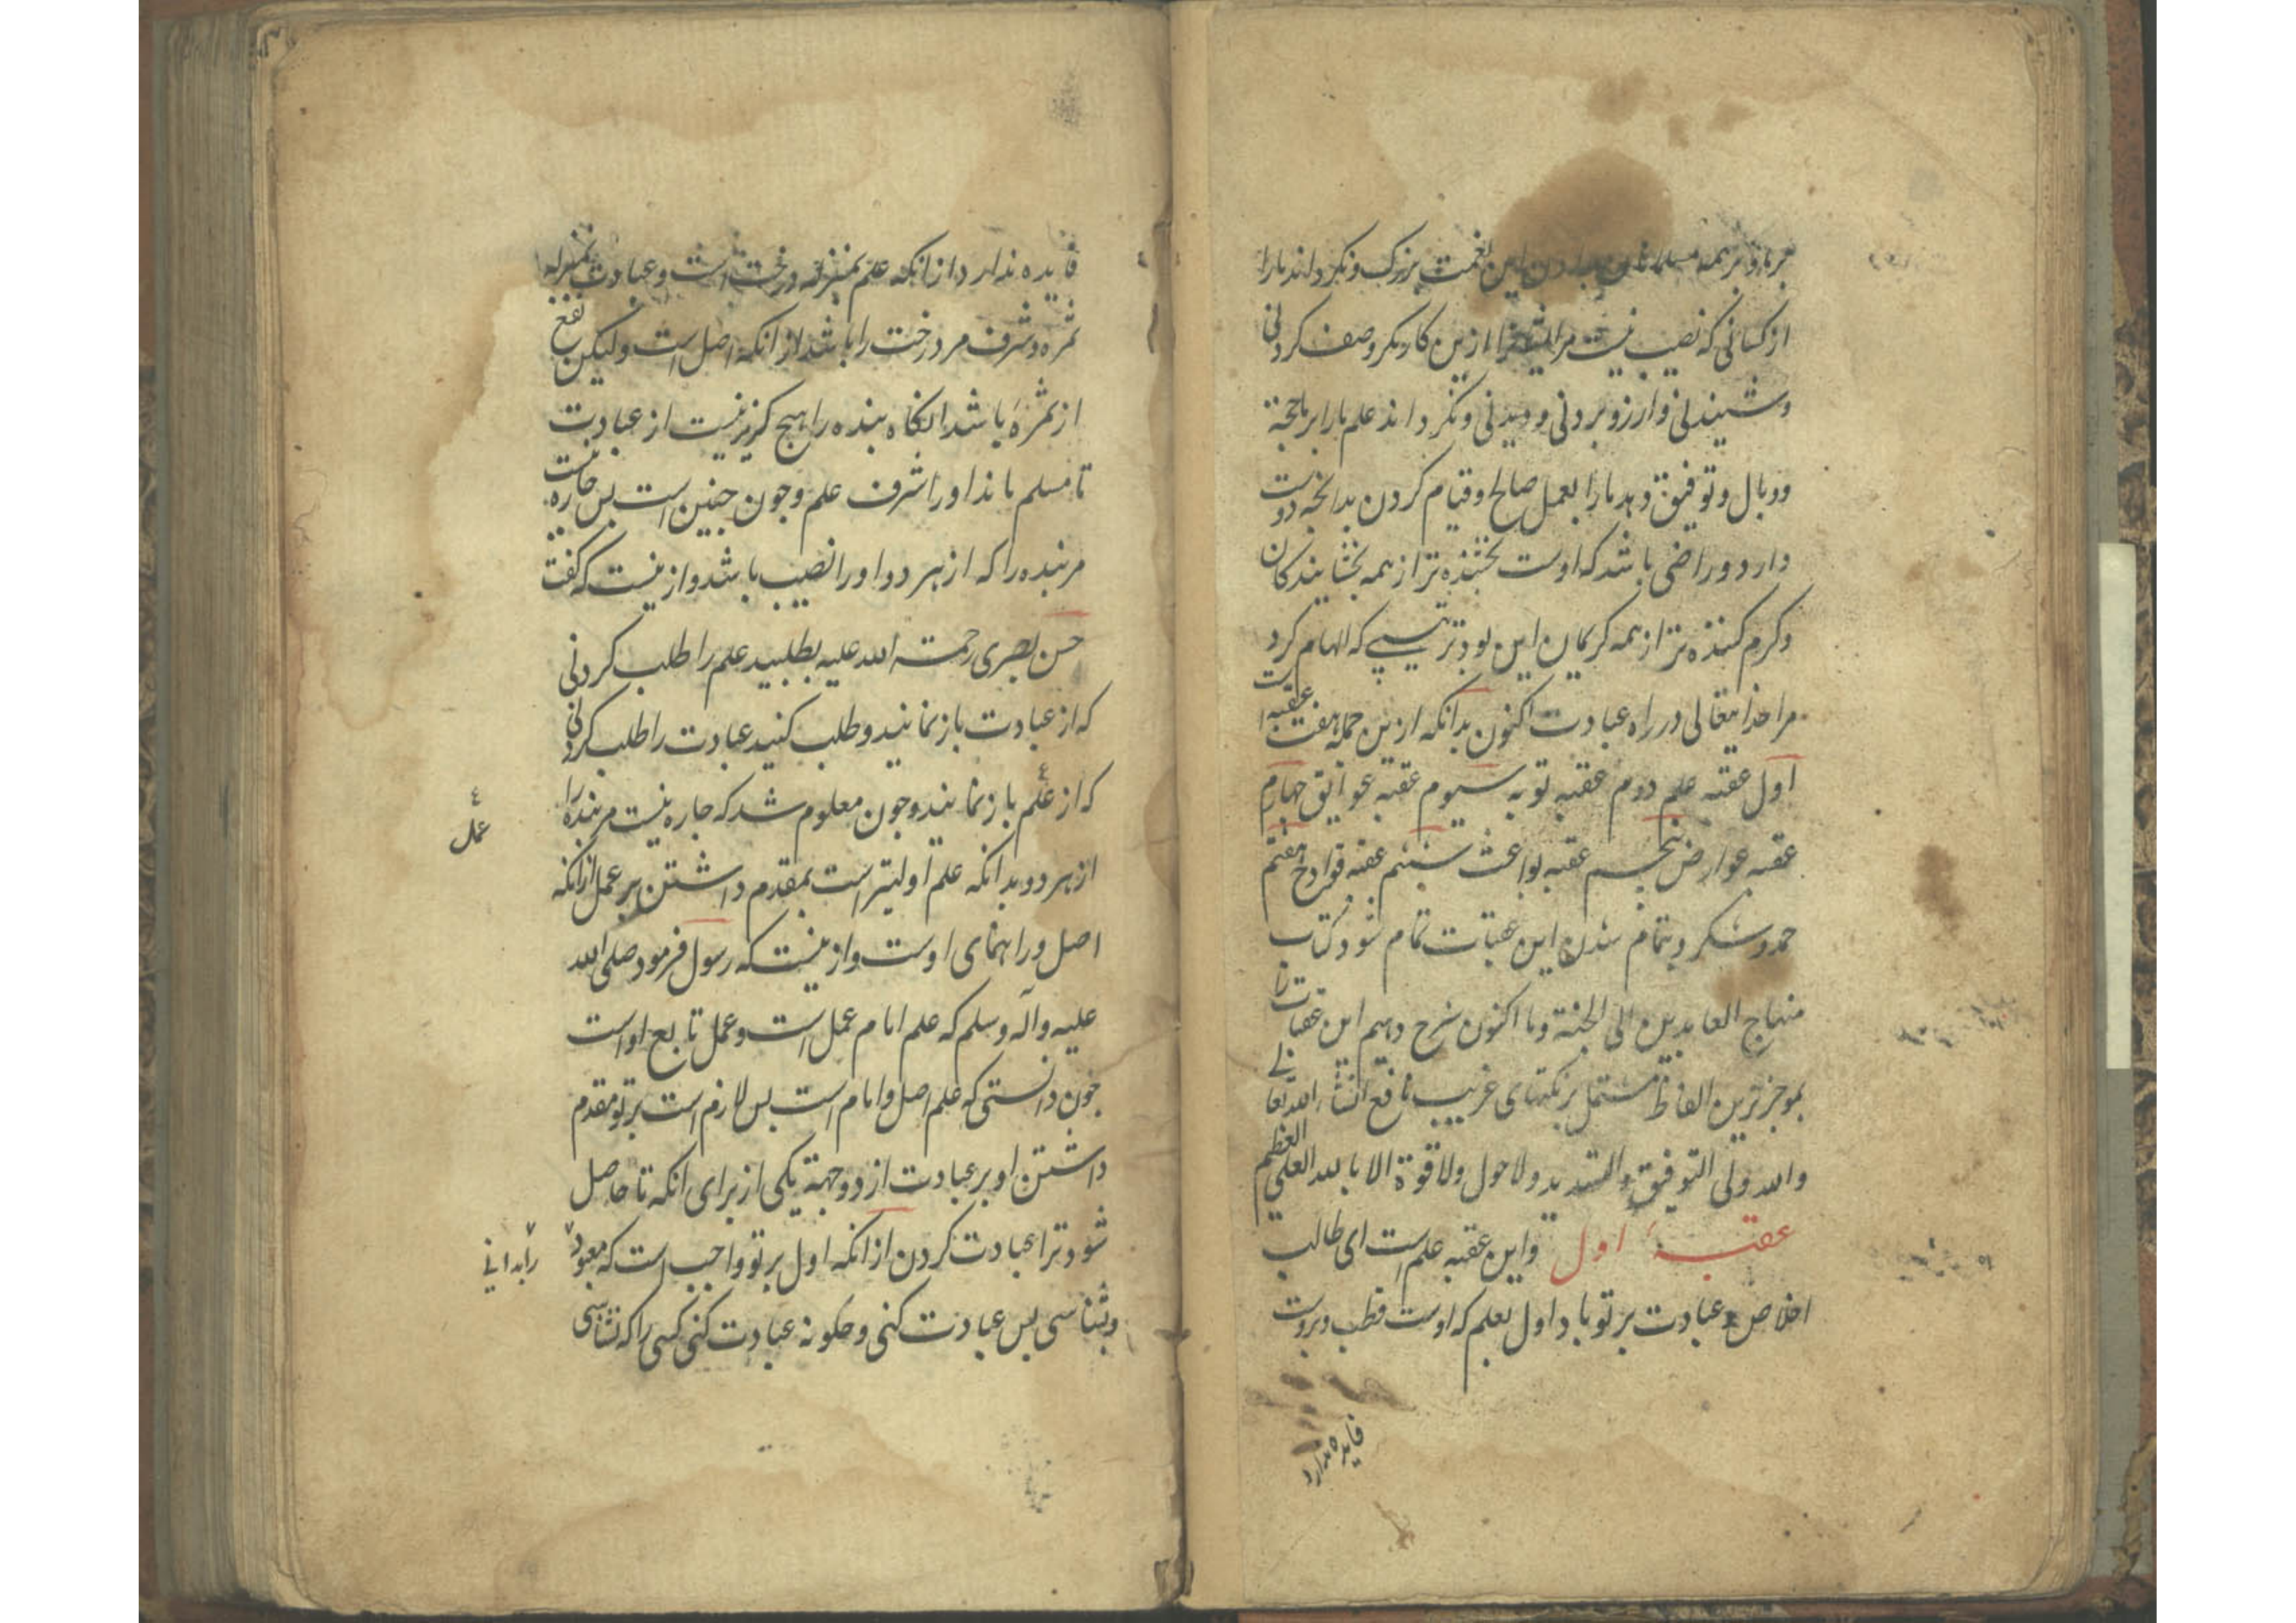 بر ما و بر همه مسلمانان بدادن این نعمت بزرگ و نگرداند ما را
از کسانی که نصیب نیست مر ایشانرا ازین کار مگر وصف کردنی
و شنیدنی و ارزو بردنی و دیدنی و نگرداند علم ما را بر ما حجة
و وبال و توفیق دهد ما را بعمل صالح و قیام کردن بدانچه دوست
دارد و راضی باشد که اوست بخشنده تر از همه بخشایندکان
و کرم کننده تر از همه کریمان این بود ترتیبی که الهام کرد
مرا خدایتعالی در راه عبادت اکنون بدانکه ازین جمله هفت عقبه است
اول عقبه علم دوم عقبه توبه سیوم عقبه عوایق چهارم
عقبه عوارض پنجم عقبه بواعث ششم عقبه قوادح هفتم
حمد و شکر و بتمام شدن این عقبات تمام شود کتاب
منهاج العابدین الی الجنة و ما اکنون شرح دهیم این عقبات را
بموجزترین الفاظ مشتمل بر نکتهای غریب نافع انشاء الله تعالی
والله ولی التوفیق والتسدید ولا حول ولا قوة الا بالله العلی العظیم
عقبهٔ اول واین عقبه علم است ای طالب
اخلاص و عبادت بر تو باد اول بعلم که اوست قطب و بروست
فایده ندارد
فایده ندارد از انکه علم بمنزله درخت است و عبادت بمنزله
ثمره و شرف مر درخت را باشد از انکه اصل است و لیکن نفع
از ثمره باشد انکاه بنده را هیچ کزیر نیست از عبادت
تا مسلم ماند او را شرف علم و چون چنین است پس چاره نیست
مر بنده را که از هر دو او را نصیب باشد و ازینست که کفت
حسن بصری رحمت الله علیه بطلبید علم را طلب کردنی
که از عبادت باز نمانید و طلب کنید عبادت را طلب کردنی
که از علم باز نمانید و چون معلوم شد که چاره نیست مر بنده را
عمل
از هر دو بدانکه علم اولیتر است بمقدم داشتن بر عمل از انکه
اصل و راهنمای اوست و ازینست که رسول فرمود صلی الله
علیه و آله و سلم که علم امام عمل است و عمل تابع اوست
چون دانستی که علم اصل و امام است پس لازم است بر تو مقدم
داشتن او بر عبادت از دو جهة یکی از برای انکه تا حاصل
شود ترا عبادت کردن از انکه اول بر تو واجب است که معبود
را بدانی
و بشناسی پس عبادت کنی و چکونه عبادت کنی کسی را که نشناسی